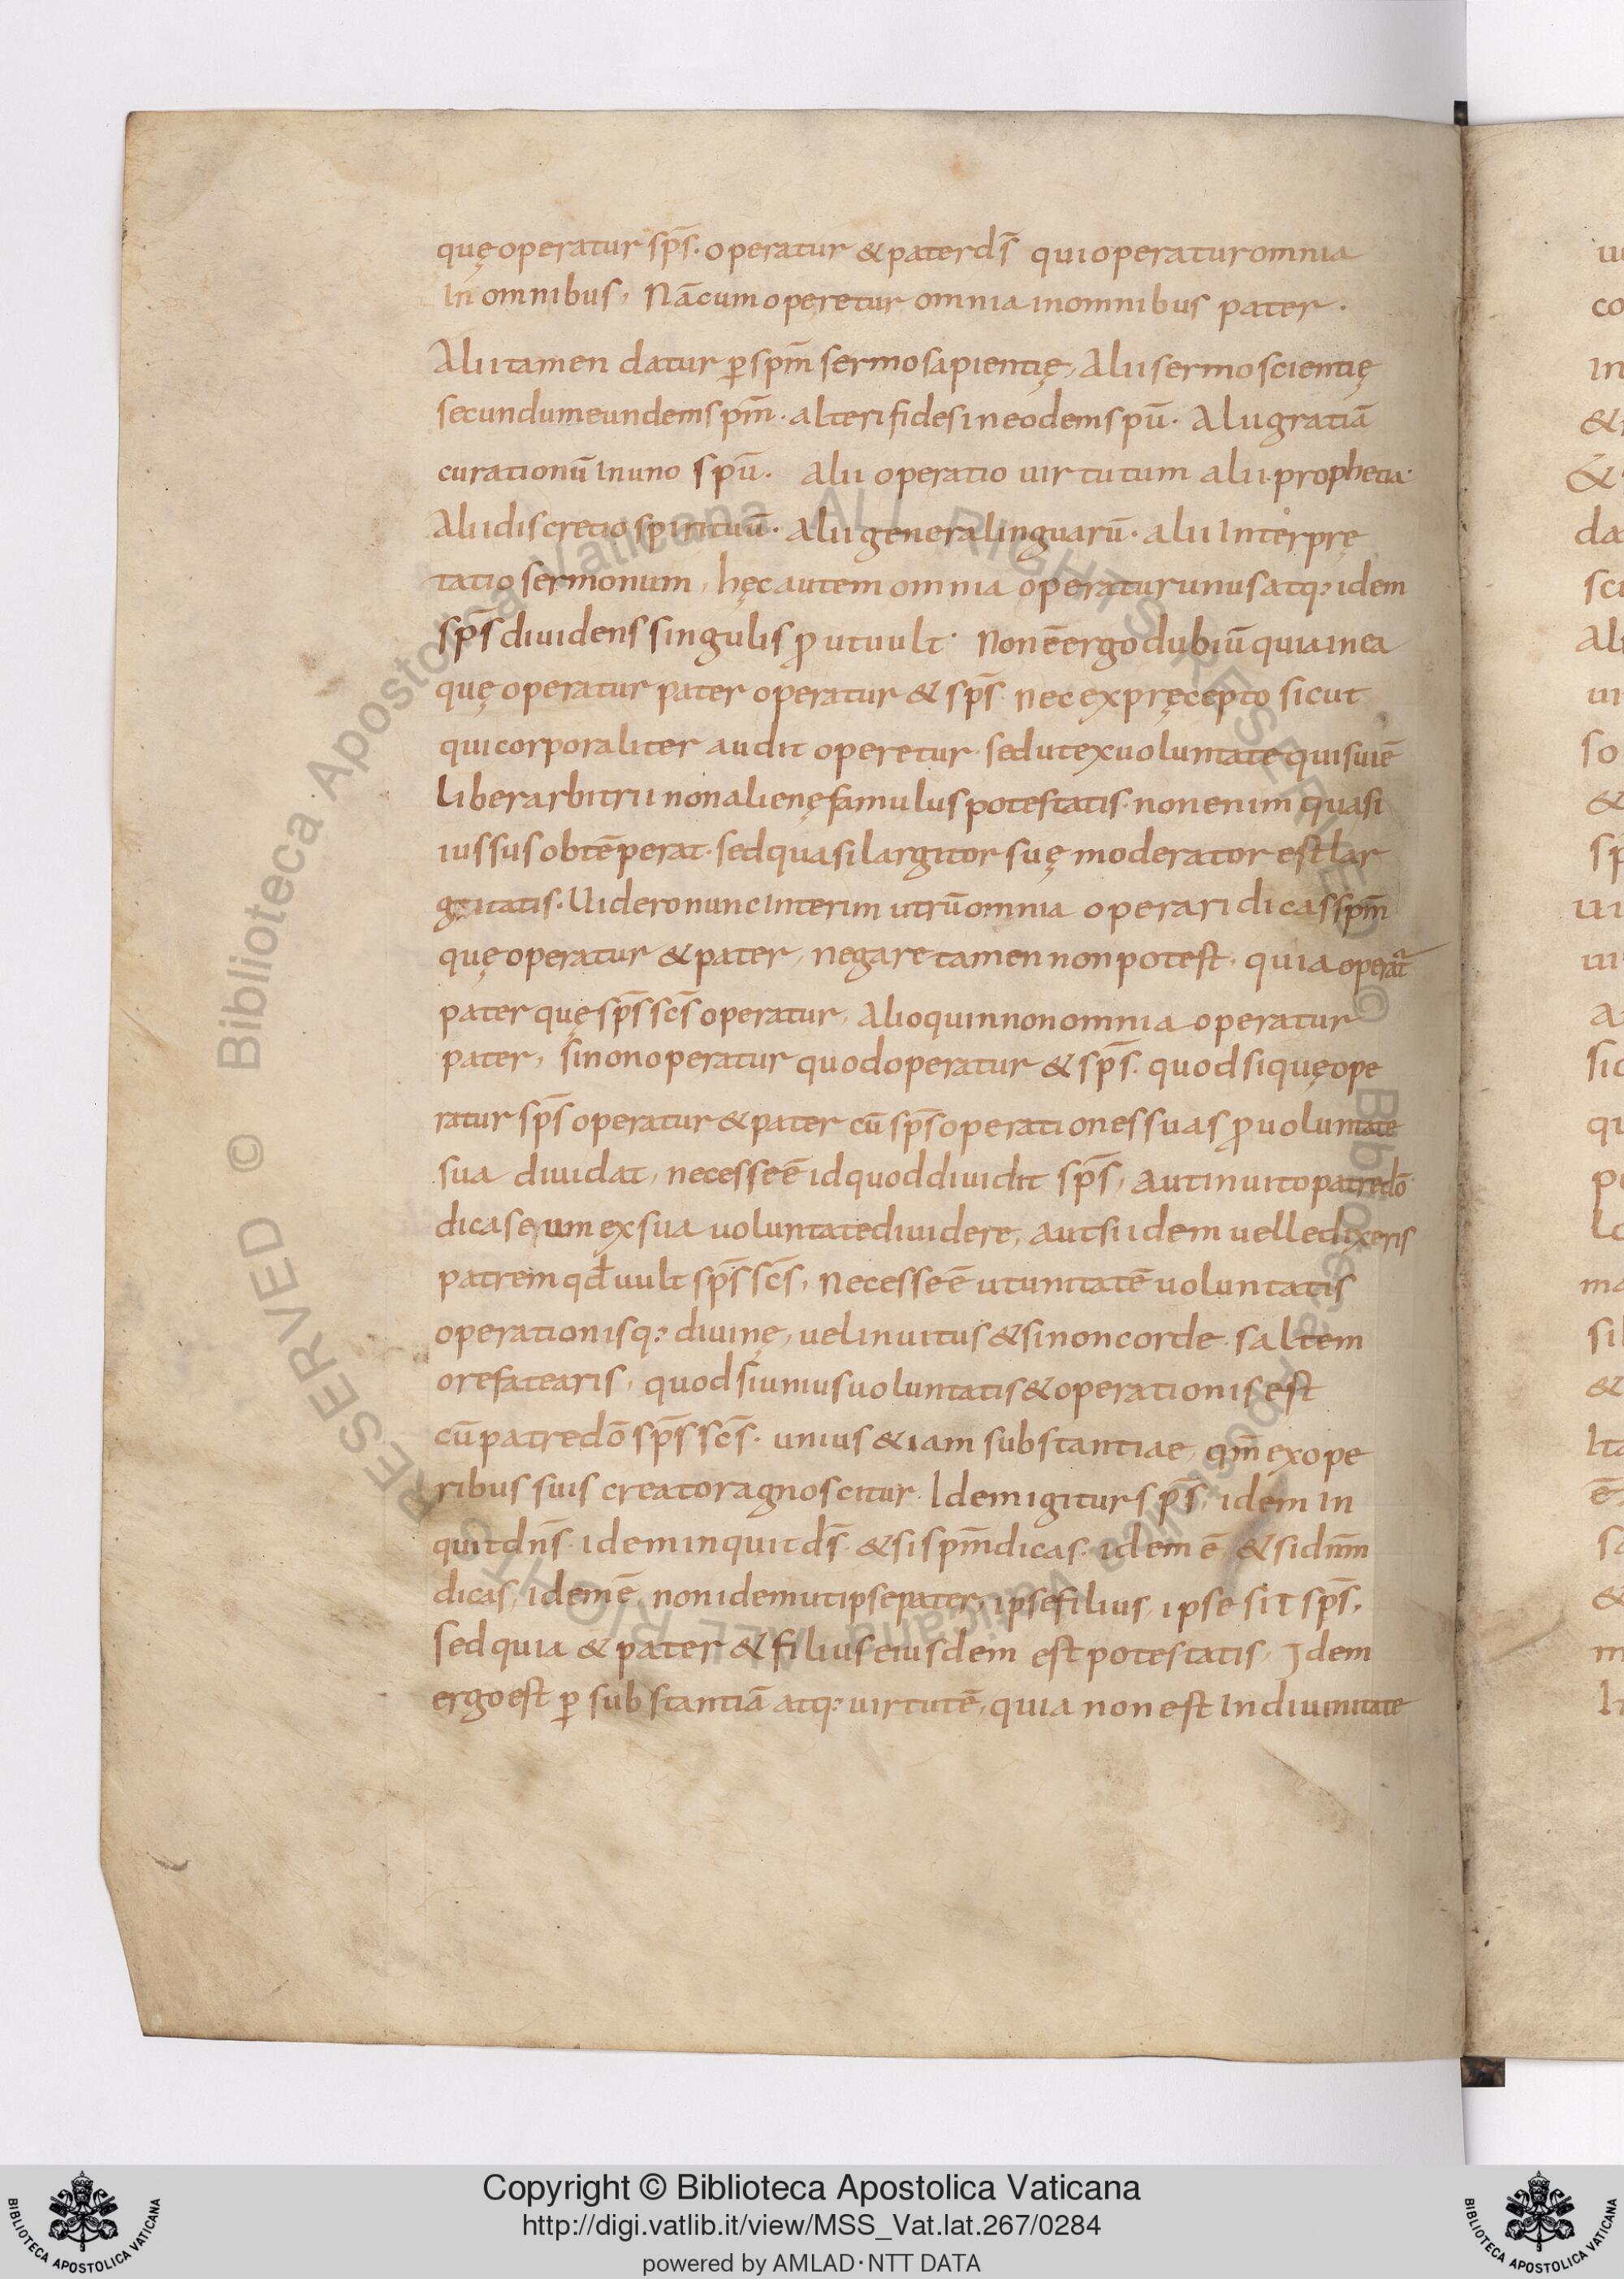 quę operatur sp̄s. operatur & pater ds̄ qui operatur omnia
In omnibus, Nā cum operetur omnia in omnibus pater.
Alii tamen datur ꝑ spm̄ sermo sapientię, Alii sermo scientię
secundum eundem spm̄. alteri fides in eodem spū. Alii gratiā
curationū In uno spū. Alii operatio uirtutum alii prophetia.
Alii discretio spirituū. Alii genera linguarū. alii Interprę
tatio sermonum, hęc autem omnia operatur unus atq; idem
sp̄s diuidens singulis ꝓut uult. Non ē ergo dubiū quia in ea
quę operatur pater operatur & sp̄s. nec ex pręcepto sicut
qui corporaliter audit operetur. sed ut ex uoluntate qui sui ē
liber arbitrii non alienę famulus potestatis. non enim quasi
iussus obtēperat. sed quasi largitor suę moderator est lar
gitatis. Uidero nunc Interim utrū omnia operari dicas spm̄
quę operatur & pater, negare tamen non potest, quia operat̄
pater quę sp̄s sc̄s operatur, Alioquin non omnia operatur
pater, si non operatur quod operatur & sp̄s. quod si quę ope
ratur sp̄s operatur & pater cū sp̄s operationes suas ꝓ uoluntate
sua diuidat, necesse ē id quod diuidit sp̄s, aut inuito patre dō
dicas eum ex sua uoluntate diuidere, aut si idem uelle dixeris
patrem qd̄ uult sp̄s sc̄s, necesse ē ut unitatē uoluntatis
operationisq; diuinę, uel inuitus & si non corde. saltem
ore fatearis, quod si unius uoluntatis & operationis est
cū patre dō sp̄s sc̄s. unius &iam substantiae, qm̄ ex ope
ribus suis creator agnoscitur. Idem igitur sp̄s, idem in
quit dn̄s. idem inquit ds̄. & si spm̄ dicas. idem ē, & si dnm̄
dicas, idem ē, non idem ut ipse pater, ipse filius, ipse sit sp̄s,
sed quia & pater & filius eiusdem est potestatis, Idem
ergo est ꝑ substantiā atq; uirtutē, quia non est In diuinitate
Copyright © Biblioteca Apostolica Vaticana
http://digi.vatlib.it/view/MSS_Vat.lat.267/0284
powered by AMLAD·NTT DATA